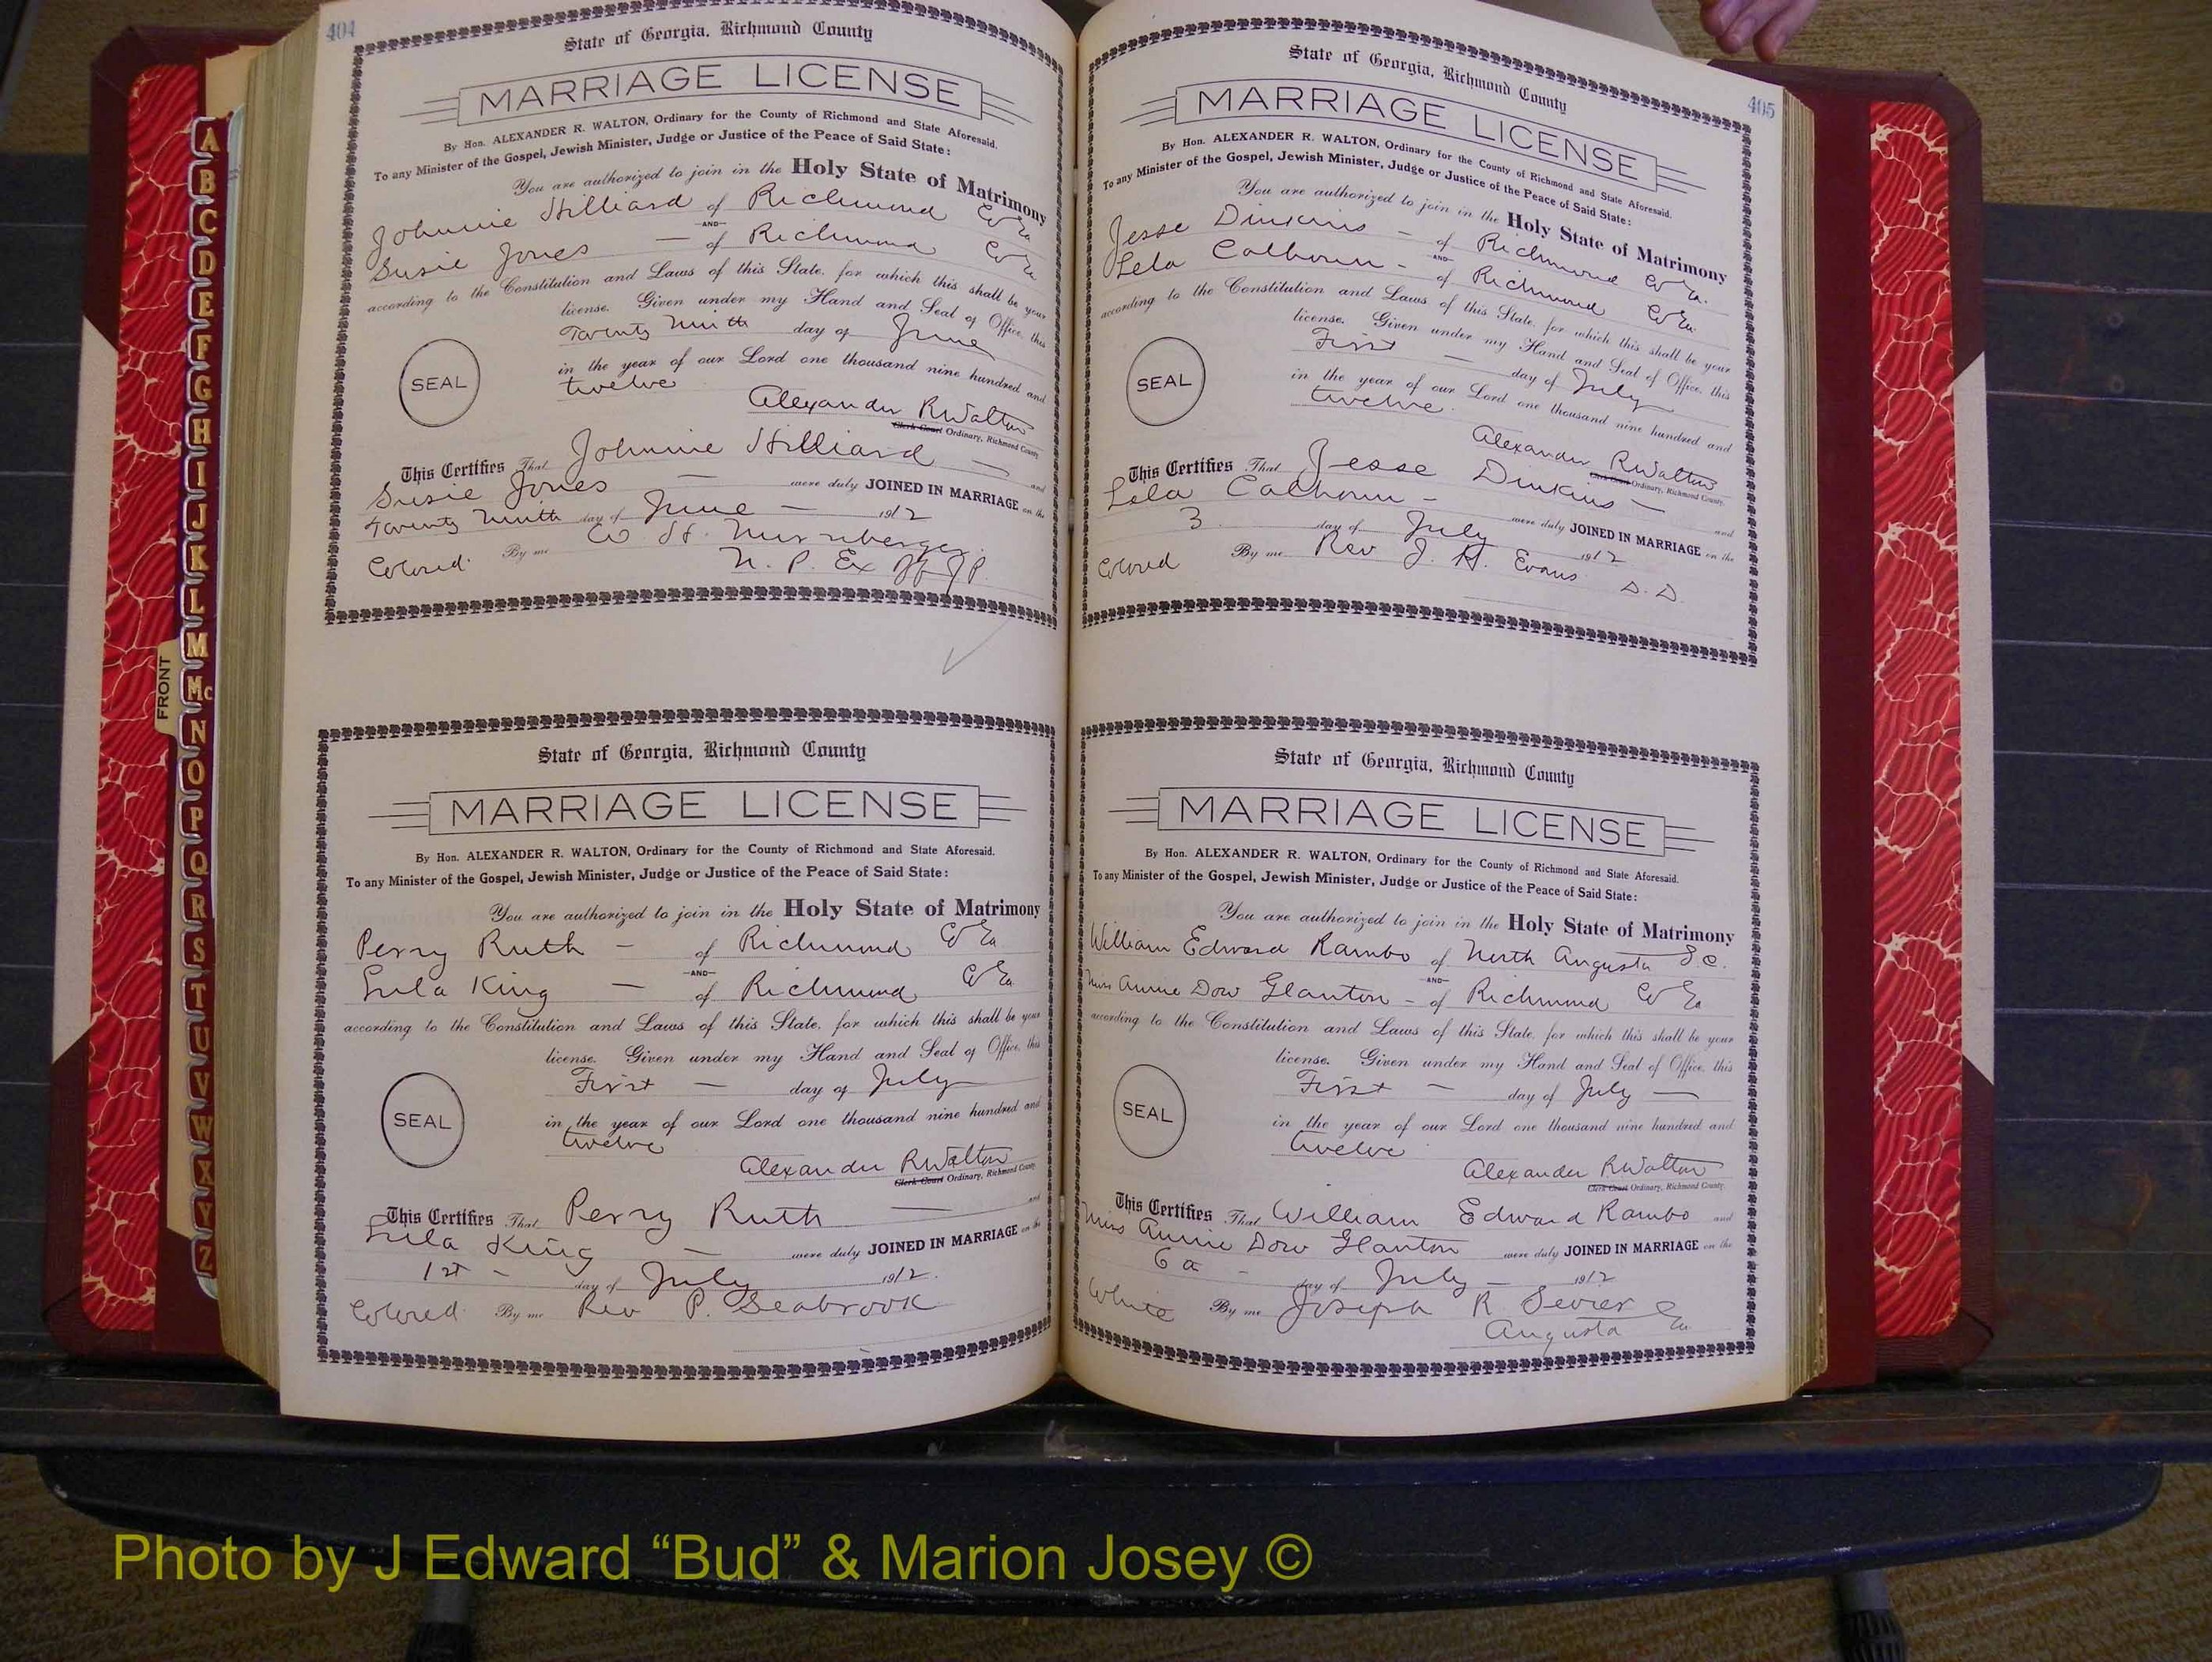 404
State of Georgia, Richmond County
MARRIAGE LICENSE
By Hon. ALEXANDER R. WALTON, Ordinary for the County of Richmond and State Aforesaid.
To any Minister of the Gospel, Jewish Minister, Judge or Justice of the Peace of Said State:
You are authorized to join in the Holy State of Matrimony
Johnnie Hilliard of Richmond Co Ga
—AND—
Susie Jones — of Richmond Co Ga
according to the Constitution and Laws of this State, for which this shall be your
license. Given under my Hand and Seal of Office, this
Twenty Ninth day of June
in the year of our Lord one thousand nine hundred and
twelve
SEAL
Alexander R Walton
Clerk Court Ordinary, Richmond County
This Certifies That Johnnie Hilliard — and
Susie Jones — were duly JOINED IN MARRIAGE on the
Twenty Ninth day of June — 1912
Colored. By me W. H. Nurnberger
N. P. Ex Off J P.
State of Georgia, Richmond County
MARRIAGE LICENSE
By Hon. ALEXANDER R. WALTON, Ordinary for the County of Richmond and State Aforesaid.
To any Minister of the Gospel, Jewish Minister, Judge or Justice of the Peace of Said State:
You are authorized to join in the Holy State of Matrimony
Perry Ruth — of Richmond Co Ga
—AND—
Lula King — of Richmond Co Ga
according to the Constitution and Laws of this State, for which this shall be your
license. Given under my Hand and Seal of Office, this
First — day of July
in the year of our Lord one thousand nine hundred and
twelve
SEAL
Alexander R Walton
Clerk Court Ordinary, Richmond County
This Certifies That Perry Ruth — and
Lula King — were duly JOINED IN MARRIAGE on the
1st — day of July 1912.
Colored. By me Rev P. Seabrook
405
State of Georgia, Richmond County
MARRIAGE LICENSE
By Hon. ALEXANDER R. WALTON, Ordinary for the County of Richmond and State Aforesaid.
To any Minister of the Gospel, Jewish Minister, Judge or Justice of the Peace of Said State:
You are authorized to join in the Holy State of Matrimony
Jesse Dinkins — of Richmond Co Ga.
—AND—
Lela Calhoun — of Richmond Co Ga.
according to the Constitution and Laws of this State, for which this shall be your
license. Given under my Hand and Seal of Office, this
First — day of July
in the year of our Lord one thousand nine hundred and
twelve.
SEAL
Alexander R Walton
Clerk Court Ordinary, Richmond County
This Certifies That Jesse Dinkins — and
Lela Calhoun — were duly JOINED IN MARRIAGE on the
3 day of July 1912
Colored By me Rev J. H. Evans D. D.
State of Georgia, Richmond County
MARRIAGE LICENSE
By Hon. ALEXANDER R. WALTON, Ordinary for the County of Richmond and State Aforesaid.
To any Minister of the Gospel, Jewish Minister, Judge or Justice of the Peace of Said State:
You are authorized to join in the Holy State of Matrimony
William Edward Rambo of North Augusta S.C.
—AND—
Miss Annie Dow Glanton — of Richmond Co Ga
according to the Constitution and Laws of this State, for which this shall be your
license. Given under my Hand and Seal of Office, this
First — day of July —
in the year of our Lord one thousand nine hundred and
twelve
SEAL
Alexander R Walton
Clerk Court Ordinary, Richmond County
This Certifies That William Edward Rambo and
Miss Annie Dow Glanton were duly JOINED IN MARRIAGE on the
6 — day of July — 1912
White By me Joseph R Sevier
Augusta Ga
A
B
C
D
E
F
G
H
I
J
K
L
M
Mc
N
O
P
Q
R
S
T
U
V
W
X
Y
Z
FRONT
Photo by J Edward “Bud” & Marion Josey ©